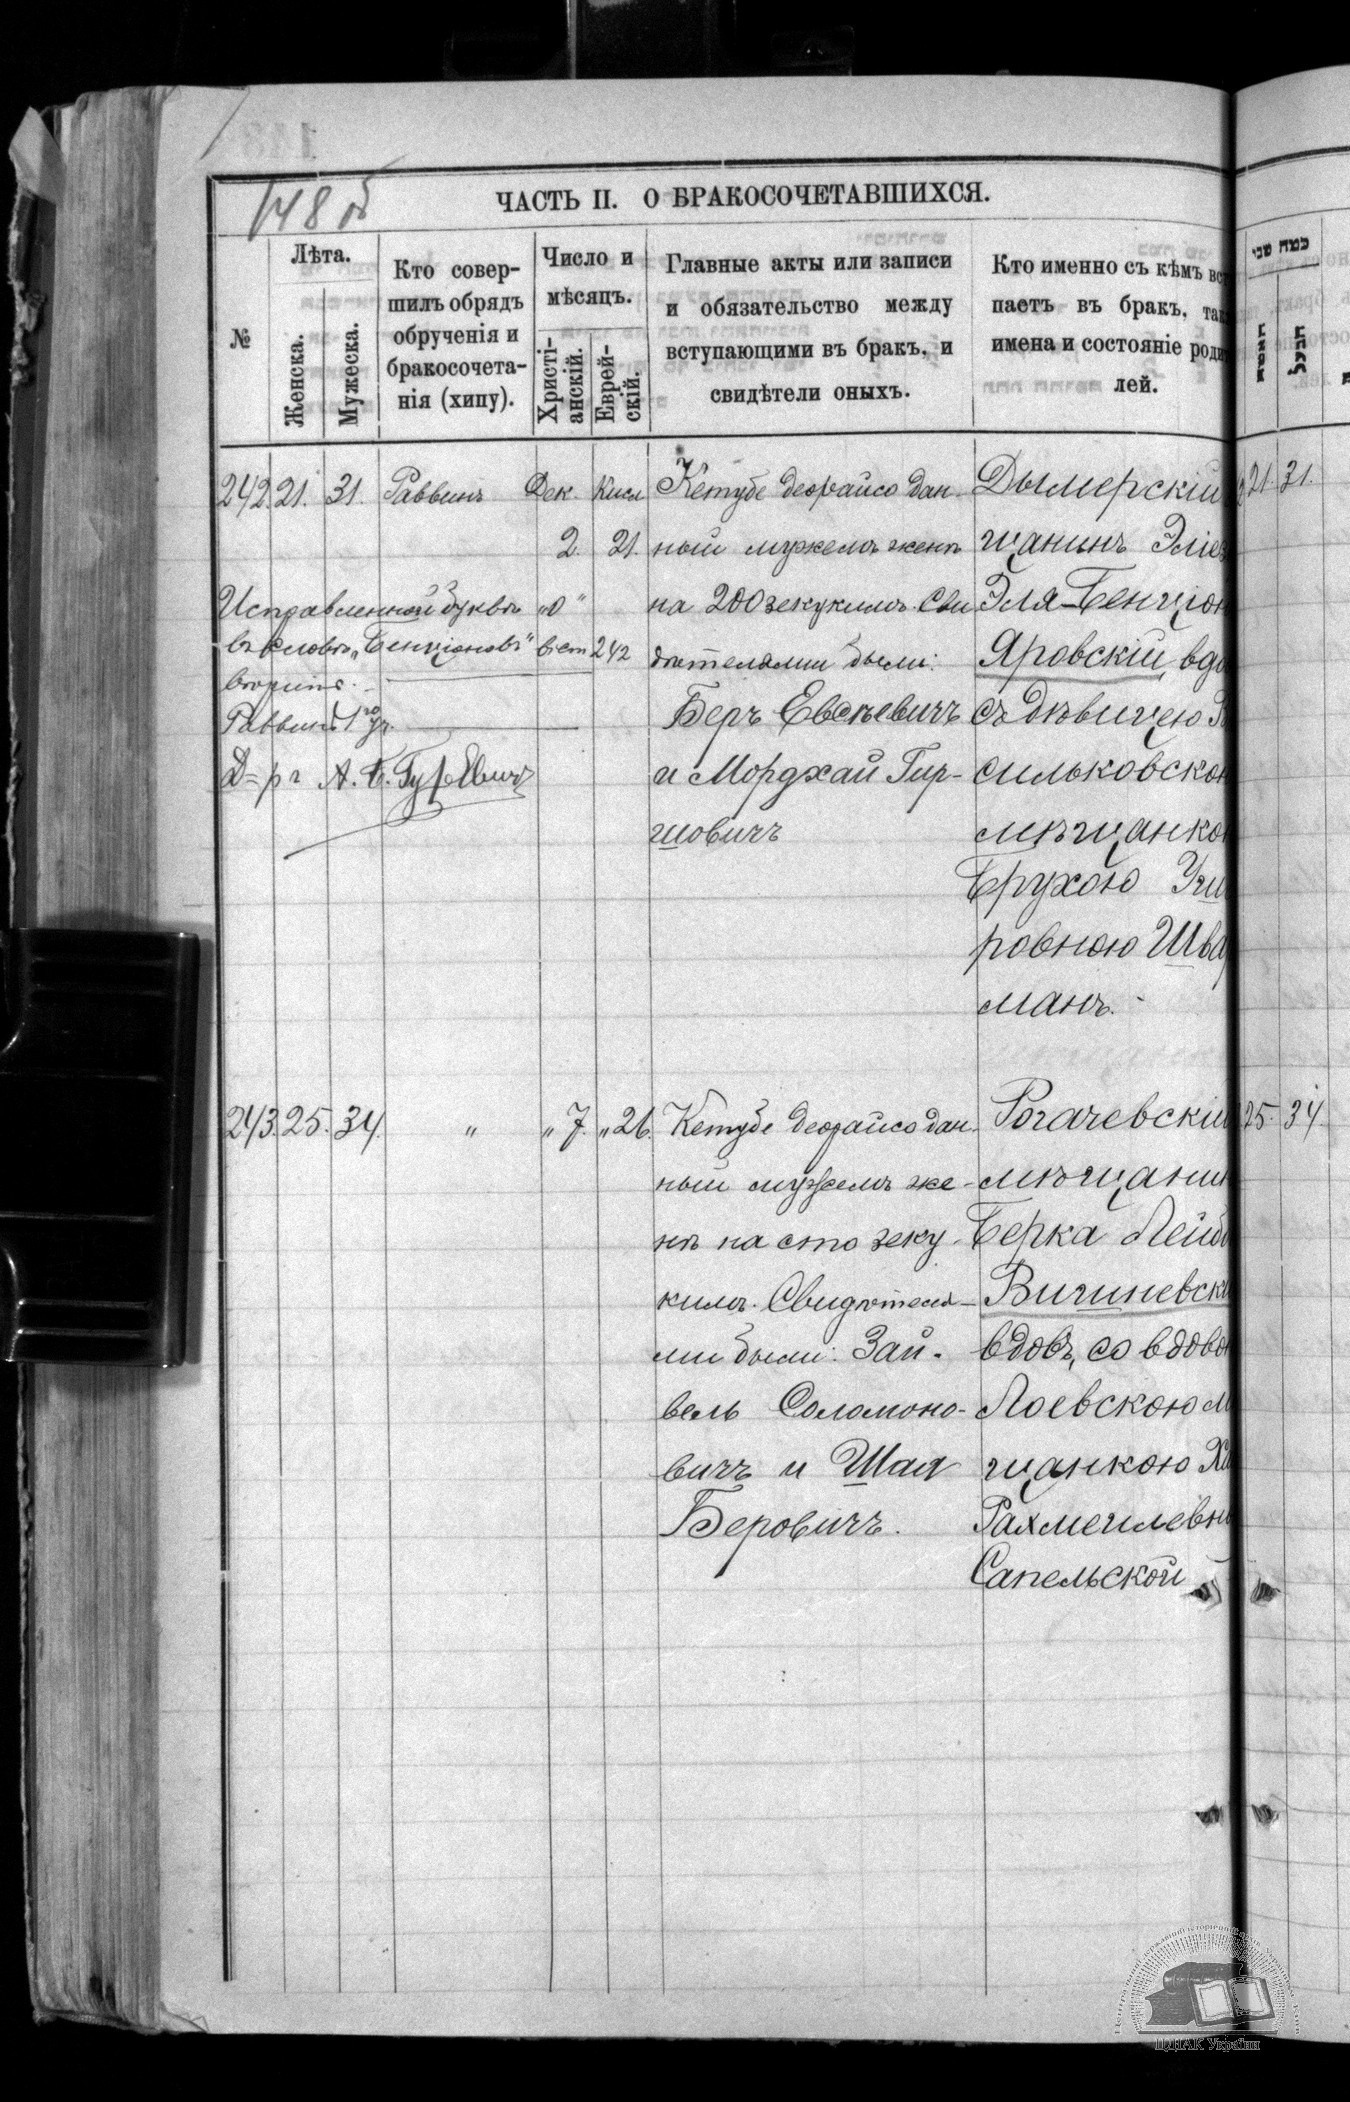 148 об
ЧАСТЬ II. О БРАКОСОЧЕТАВШИХСЯ.
№
Лѣта.
Женска.
Мужеска.
Кто совер-
шилъ обрядъ
обрученія и
бракосочета-
нія (хипу).
Число и
мѣсяцъ.
Христі-
анскій.
Еврей-
скій.
Главные акты или записи
и обязательство между
вступающими въ бракъ, и
свидѣтели оныхъ.
Кто именно съ кѣмъ вст
паетъ въ бракъ, так
имена и состояніе роди
лей.
כמה שני
242. 21. 31. Раввинъ Дек. Кисл
2. 21.
Кетубе деорайсо дан-
ный мужемъ женѣ
на 200 зекукимъ. Сви
дѣтелями были:
Беръ Евсѣевичъ
и Мордхай Гир-
шовичъ
Дымерскій
щанинъ Эліе
Эля-Бенціон
Яровскій, вдо
съ дѣвицею
сильковско
мѣщанко
Брухою
ровною Шва
манъ.
Исправленной буквѣ „о“
въ словѣ „Бенціоновъ“ въ ст 242
вѣрить.
Раввинъ 1го уч.
Д-ръ А. Б. Гуревичъ
243. 25. 34. " " 7. " 26.
Кетубе деорайсо дан-
ный мужемъ же-
нѣ на сто зеку-
кимъ. Свидѣтеля-
ми были: Зай-
вель Соломоно-
вичъ и Шая
Беровичъ.
Рогачевскій
мѣщанин
Берка Лейб
Вичиневск
вдовъ, со вдово
Лоевскою м
щанкою Ха
Рахмеилевн
Сапельской
21. 31.
25. 34.
ЦДІАК України